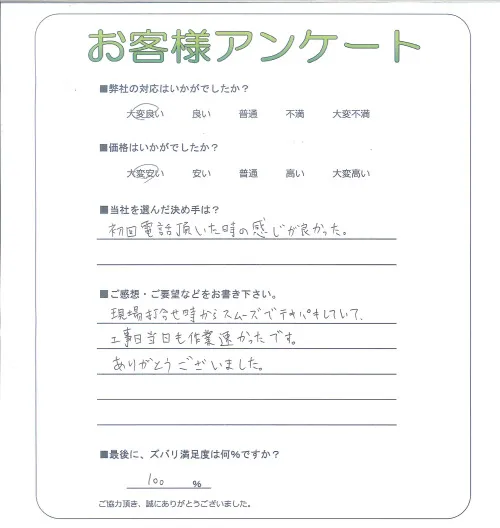 お客様アンケート
■弊社の対応はいかがでしたか？
大変良い 良い 普通 不満 大変不満
■価格はいかがでしたか？
大変安い 安い 普通 高い 大変高い
■当社を選んだ決め手は？
初回電話頂いた時の感じが良かった。
■ご感想・ご要望などをお書き下さい。
現場打合せ時からスムーズでテキパキしていて、
工事日当日も作業速かったです。
ありがとうございました。
■最後に、ズバリ満足度は何%ですか？
100 %
ご協力頂き、誠にありがとうございました。